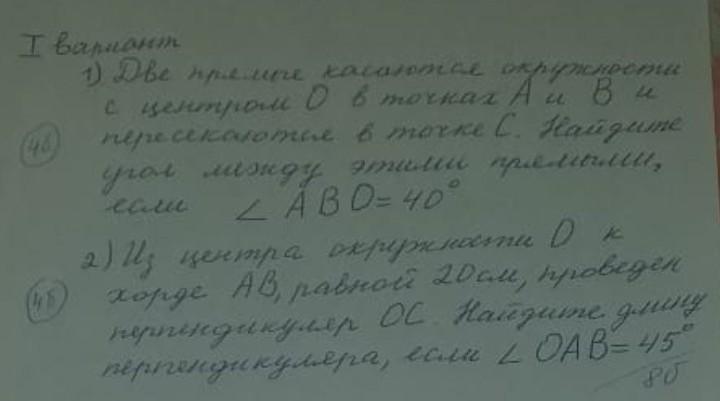 I вариант
1) Две прямые касаются окружности
с центром О в точках А и В и
4б пересекаются в точке С. Найдите
угол между этими прямыми,
если ∠ABO=40°
2) Из центра окружности О к
4б хорде АВ, равной 20см, проведен
перпендикуляр ОС. Найдите длину
перпендикуляра, если ∠OAB=45°
8б